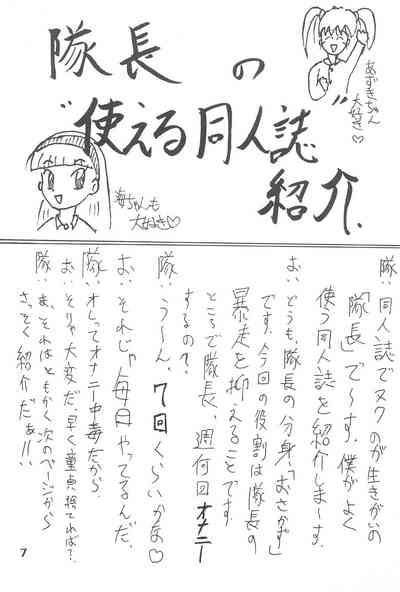 隊長の
"使える同人誌"
紹介.
あずきちゃん
大好き♡
海ちゃんも
大好き♡
隊:同人誌でヌクのが生きがいの
「隊長」で〜す。僕がよく
使う同人誌を紹介しま〜す。
お:どうも、隊長の分身、「おさかず」
です。今回の役割は隊長の
暴走を抑えることです。
ところで隊長、週何回オナニー
するの?
隊:う〜ん、7回くらいかな♡
お:それじゃ毎日やってるんだ。
隊:オレってオナニー中毒だから。
お:そりゃ大変だ。早く童貞捨てれば?
隊:ま、それはともかく次のページから
さっそく紹介だぁ!!
7